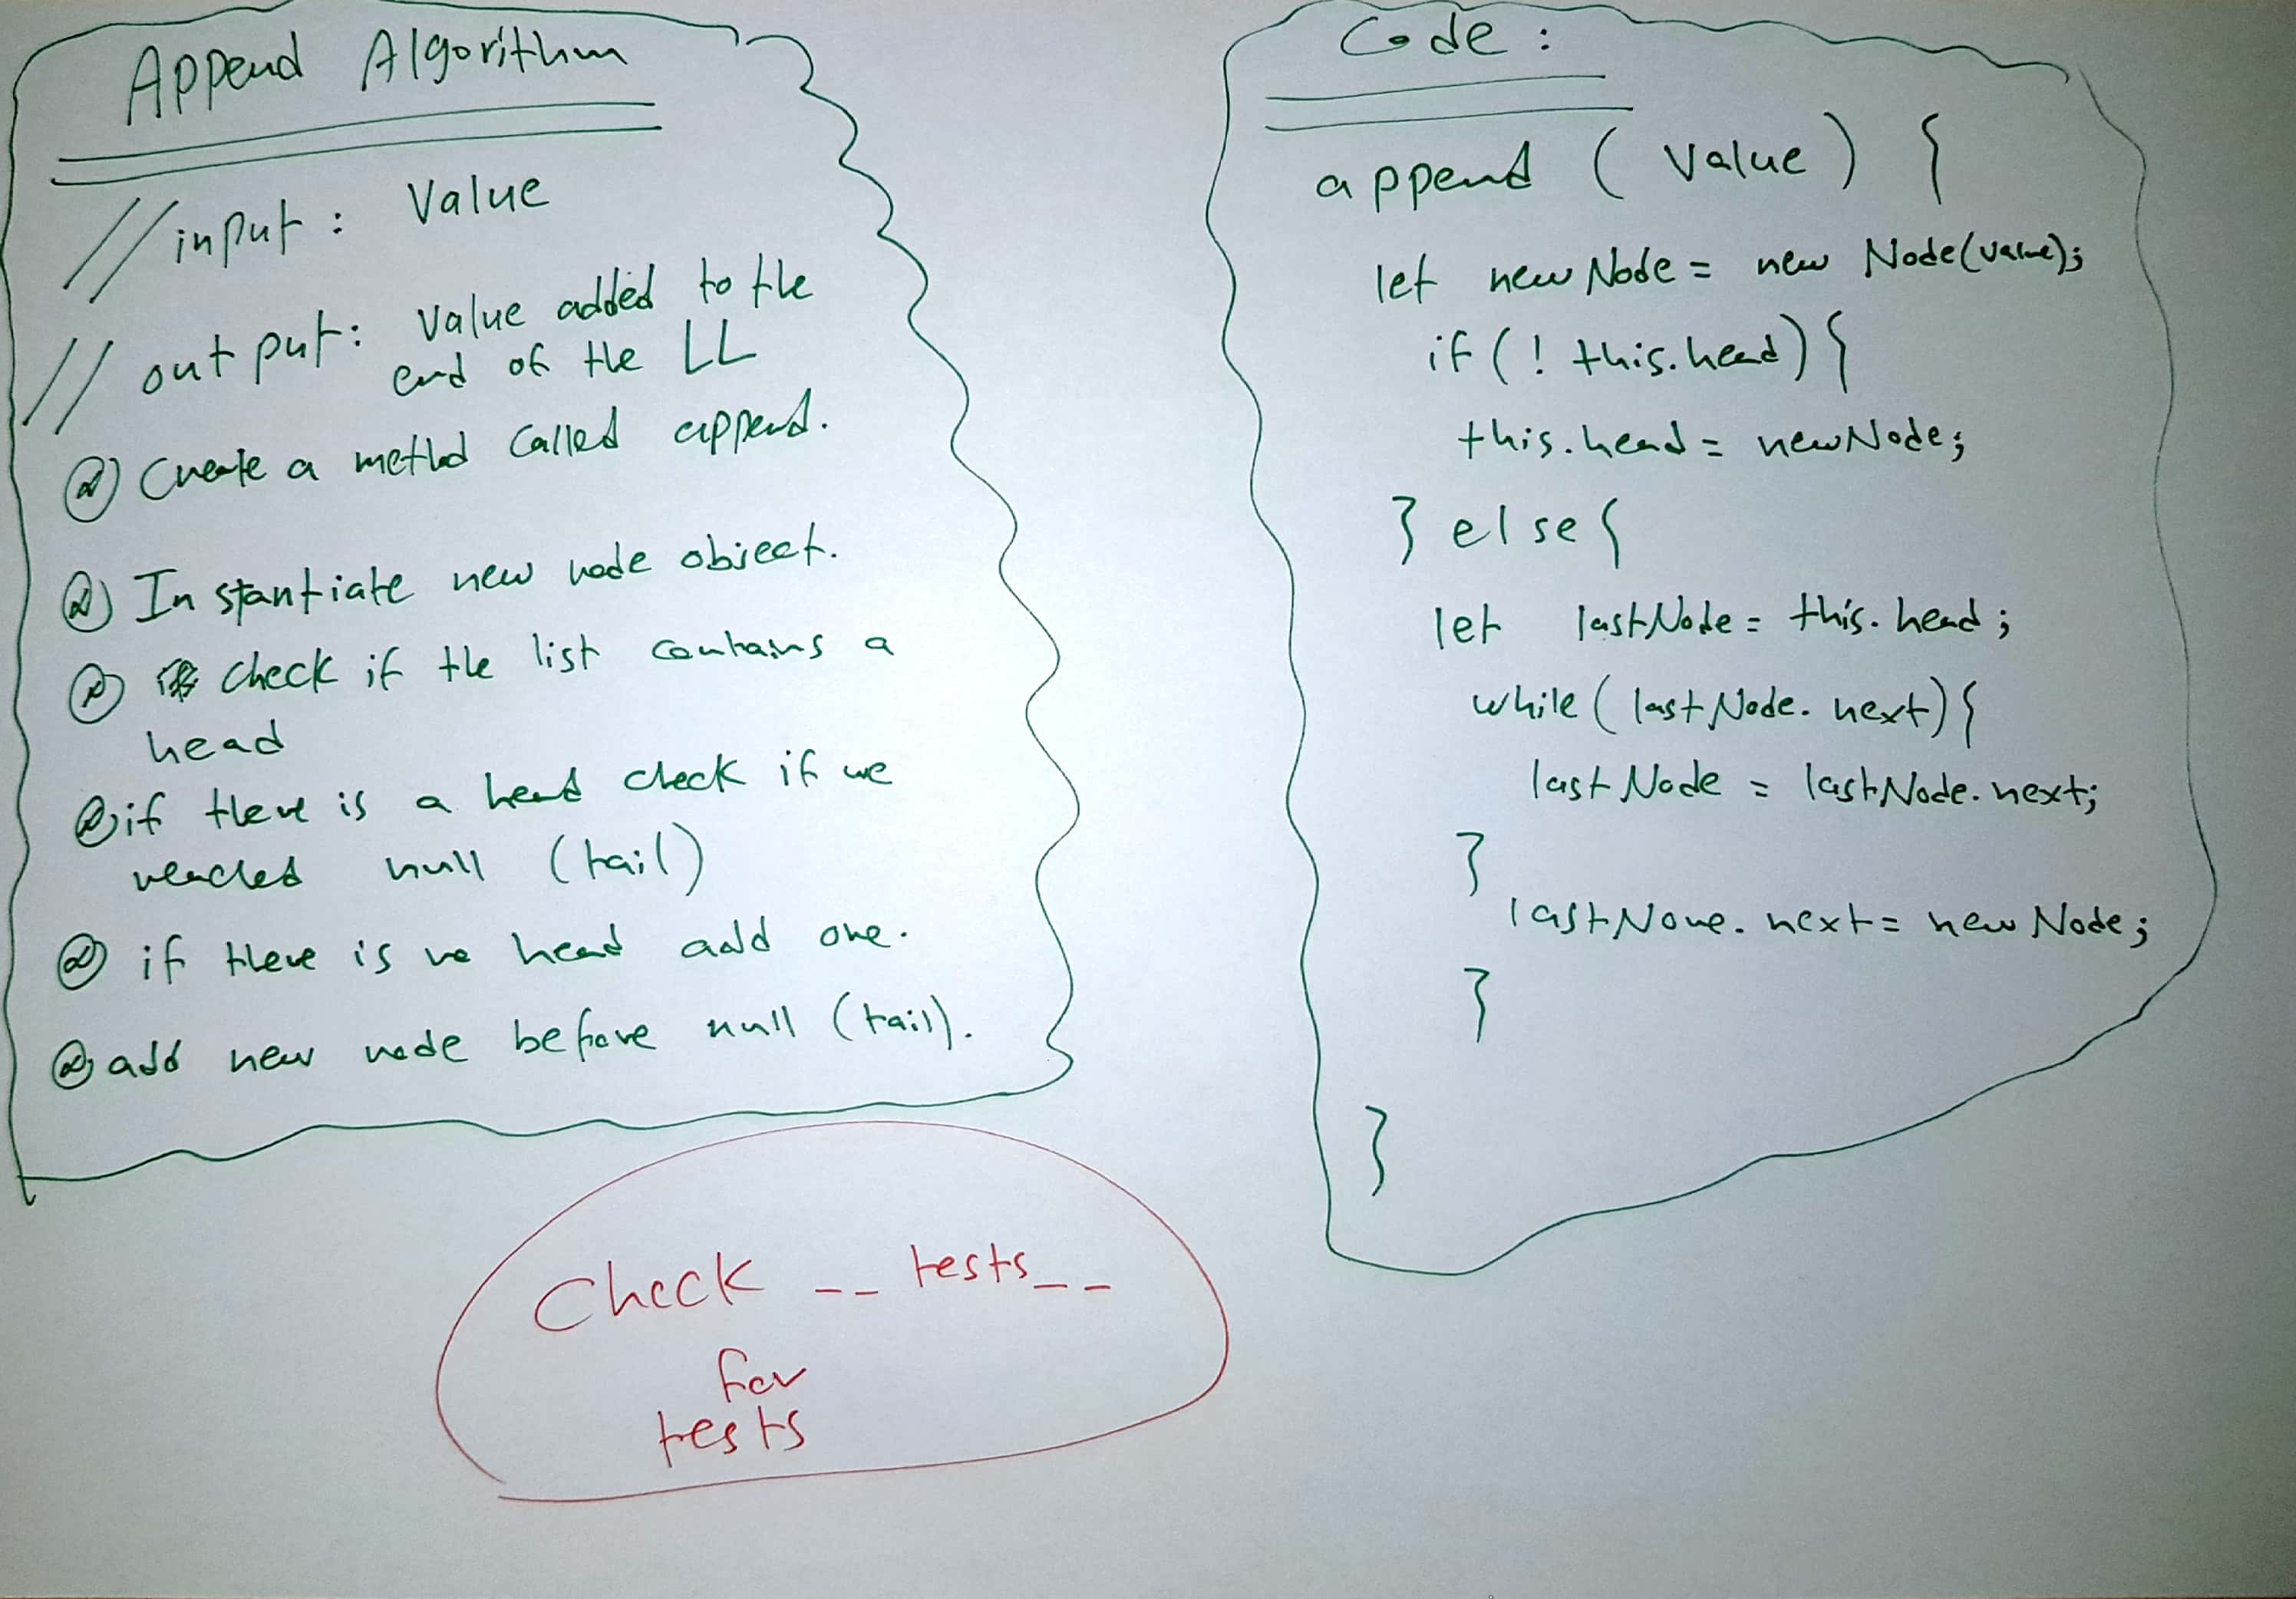 Append Algorithm
// input : Value
// output: Value added to the
end of the LL
Create a method called append.
Instantiate new node object.
check if the list contains a
head
if there is a head check if we
reached null (tail)
if there is no head add one.
add new node before null (tail).
Code :
append ( value ) {
let newNode = new Node(value);
if ( ! this.head) {
this.head = newNode;
} else {
let lastNode = this.head ;
while ( lastNode. next) {
lastNode = lastNode.next;
}
lastNone. next = newNode;
}
}
Check __ tests__
for
tests